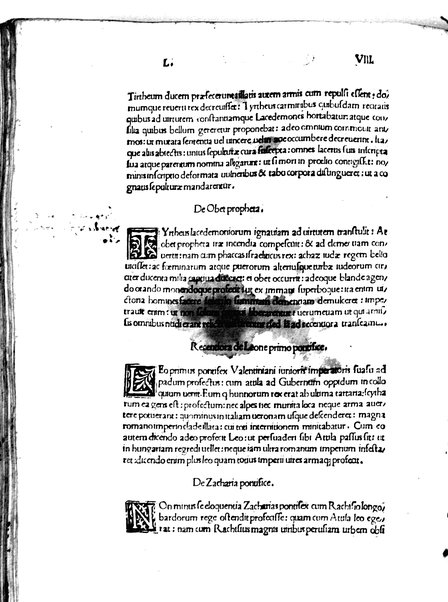 L. VIII.
Tirtheum ducem præfecerunt: illatis autem armis cum repulsi essent: do/
mumque reverti rex decreuisset: Tyrtheus carminibus quibusdam recitatis
quibus ad uirtutem constantiamque Lacedemones hortabatur: atque con/
silia quibus bellum gereretur proponebat: adeo omnium commouit ani/
mos: ut mutata sententia uel uincere uelin aque occumbere decreuerint. Ita/
que aliis abiectis: unius sepulturæ cura suscepta: omnes lacertis suis inscripta
sua atque parentum nomina alligarunt: ut si mori in proelio contigisset: no/
minis inscriptio deformata uulneribus & tabo corpora distingueret: ut a co
gnatis sepulturæ mandarentur.
De Obet propheta.
TYrtheus lacedemoniorum ignauiam ad uirtutem transtulit: At
obet propheta iræ incendia compescuit: & ad clementiam con/
uertit: nam cum phaceus israelticus rex: achaz iudæ regem bello
uicisset: ac fœminarum atque puerorum alteriusque turbæ iudeorum cir/
citer ducenta milia captiua duceret: ei obet occurrit: adeoque blande agen/
do orando monendoque profecit: ut ex immani superboque: ira enim ui/
ctoria homines facere solent summam clementiam demulceret: impe/
trauit enim: ut non solum captiui liberarentur: uerumetiam ut qui armi/
sis omnibus nudi erant reliqui uestirentur sed iam ad recentiora transeamus.
Recentiora de Leone primo pontifice.
LEo primus pontifex Valentiniani iunioris imperatoris suasu ad
padum profectus: cum atila ad Gubernum oppidum in collo
quium uenit. Eum q hunnorum rex erat ab ultima tartaria: scytha
rum ea gens est: profectum: nec alpes nec munita loca neque arma auer/
tere potuerant: quin minus in italiam ueronam usque descenderet: magna
romano imperio clade illata: cui trei internitionem minitabatur. Cum eo
autem dicendo adeo profecit Leo: ut persuaderi sibi Attula passus sit: ut
in hungariam regredi uellet: neque iam ultra romanum imperium infesta/
ret: dicendo enim plus leo quam totius imperii uires armaque profecit.
De Zacharia pontifice.
NOn minus se eloquentia Zacharias pontifex cum Rachisio longo/
bardorum rege ostendit profecisse: quam cum Atula leo ege/
rat: nam cum Rachisius magnis uiribus perusiam urbem obsi